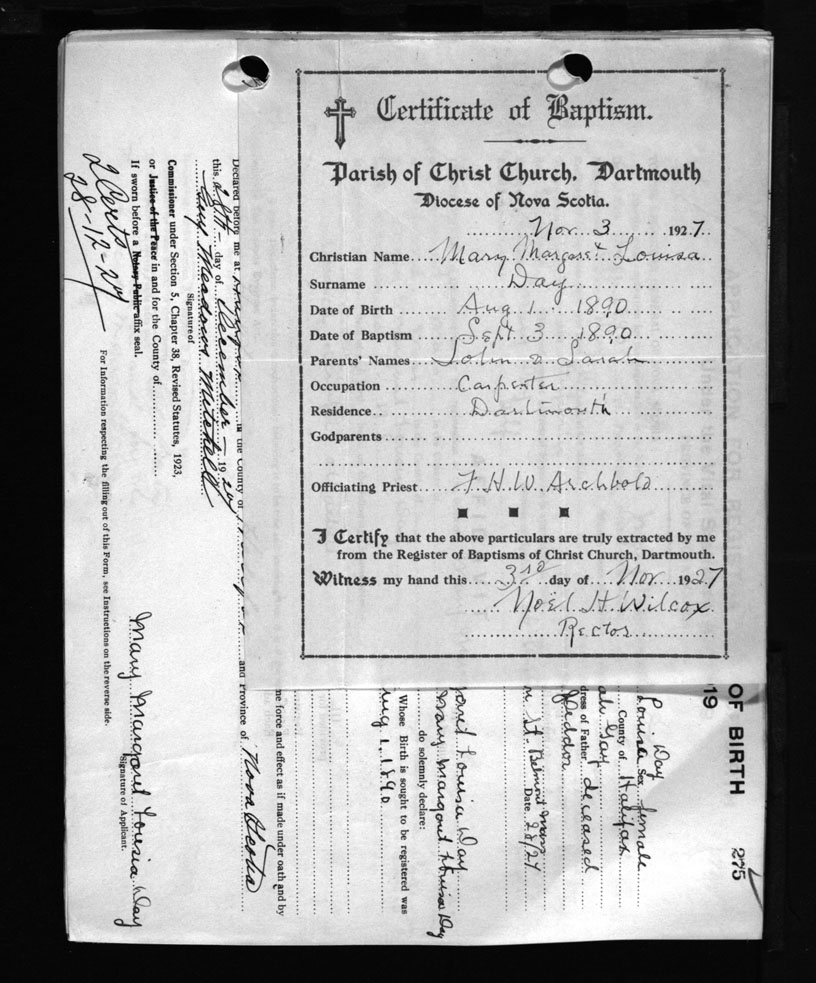 Certificate of Baptism.
Parish of Christ Church, Dartmouth
Diocese of Nova Scotia.
Nov. 3 1927.
Christian Name Mary Margaret Louisa
Surname Day
Date of Birth Aug 1 1890
Date of Baptism Sept. 3 1890
Parents' Names John & Sarah
Occupation Carpenter
Residence Dartmouth
Godparents
Officiating Priest F. H. W. Archbold
I Certify that the above particulars are truly extracted by me
from the Register of Baptisms of Christ Church, Dartmouth.
Witness my hand this 3rd day of Nov. 1927
Noël H. Wilcox
Rector
OF BIRTH 275
19
Day
Louisa Sex female
County of Halifax
Gay
dress of Father deceased
St. Belmont Mass
Date
Louisa Day
Mary Margaret Louisia Day
do solemnly declare:
Whose Birth is sought to be registered was
Aug 1. 1890
me force and effect as if made under oath and by
Declared before me at in the County of and Province of Nova Scotia
this 28th day of December 19
Guy Meadows Mitchell
Signature of
Commissioner under Section 5, Chapter 38, Revised Statutes, 1923,
or Justice of the Peace in and for the County of
If sworn before a Notary Public affix seal.
Mary Margaret Louisia Day
Signature of Applicant.
For Information respecting the filling out of this Form, see Instructions on the reverse side.
2 Certs
28-12-27